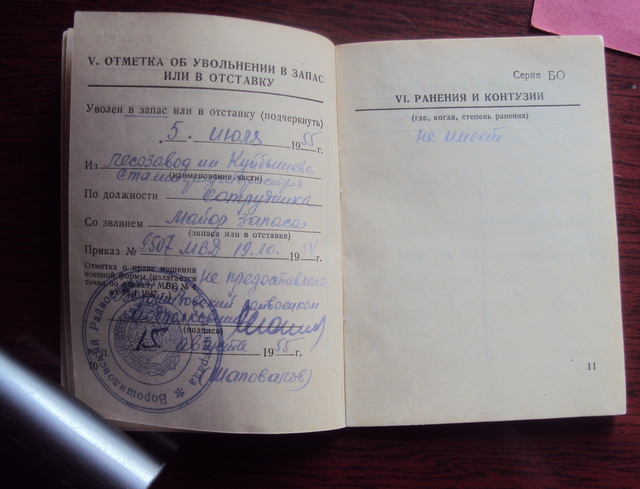 V. ОТМЕТКА ОБ УВОЛЬНЕНИИ В ЗАПАС
ИЛИ В ОТСТАВКУ
Уволен в запас или в отставку (подчеркнуть)
„5" июля 1955 г.
Из лесозавод им Куйбышева
(наименование части)
По должности сотрудника
Со званием майор запаса
(запаса или в отставке)
Приказ № 9507 МВД 19.10. 1954 г.
Отметка о праве ношения
военной формы (излагается
точно по приказу МВС № 4
1947 г.) не предоставлено.
(подпись)
15 августа 1955 г.
М. п.
10
(Шаповалов)
Ворошиловский
Серия БО
VI. РАНЕНИЯ И КОНТУЗИИ
(где, когда, степень ранения)
не имеет
11